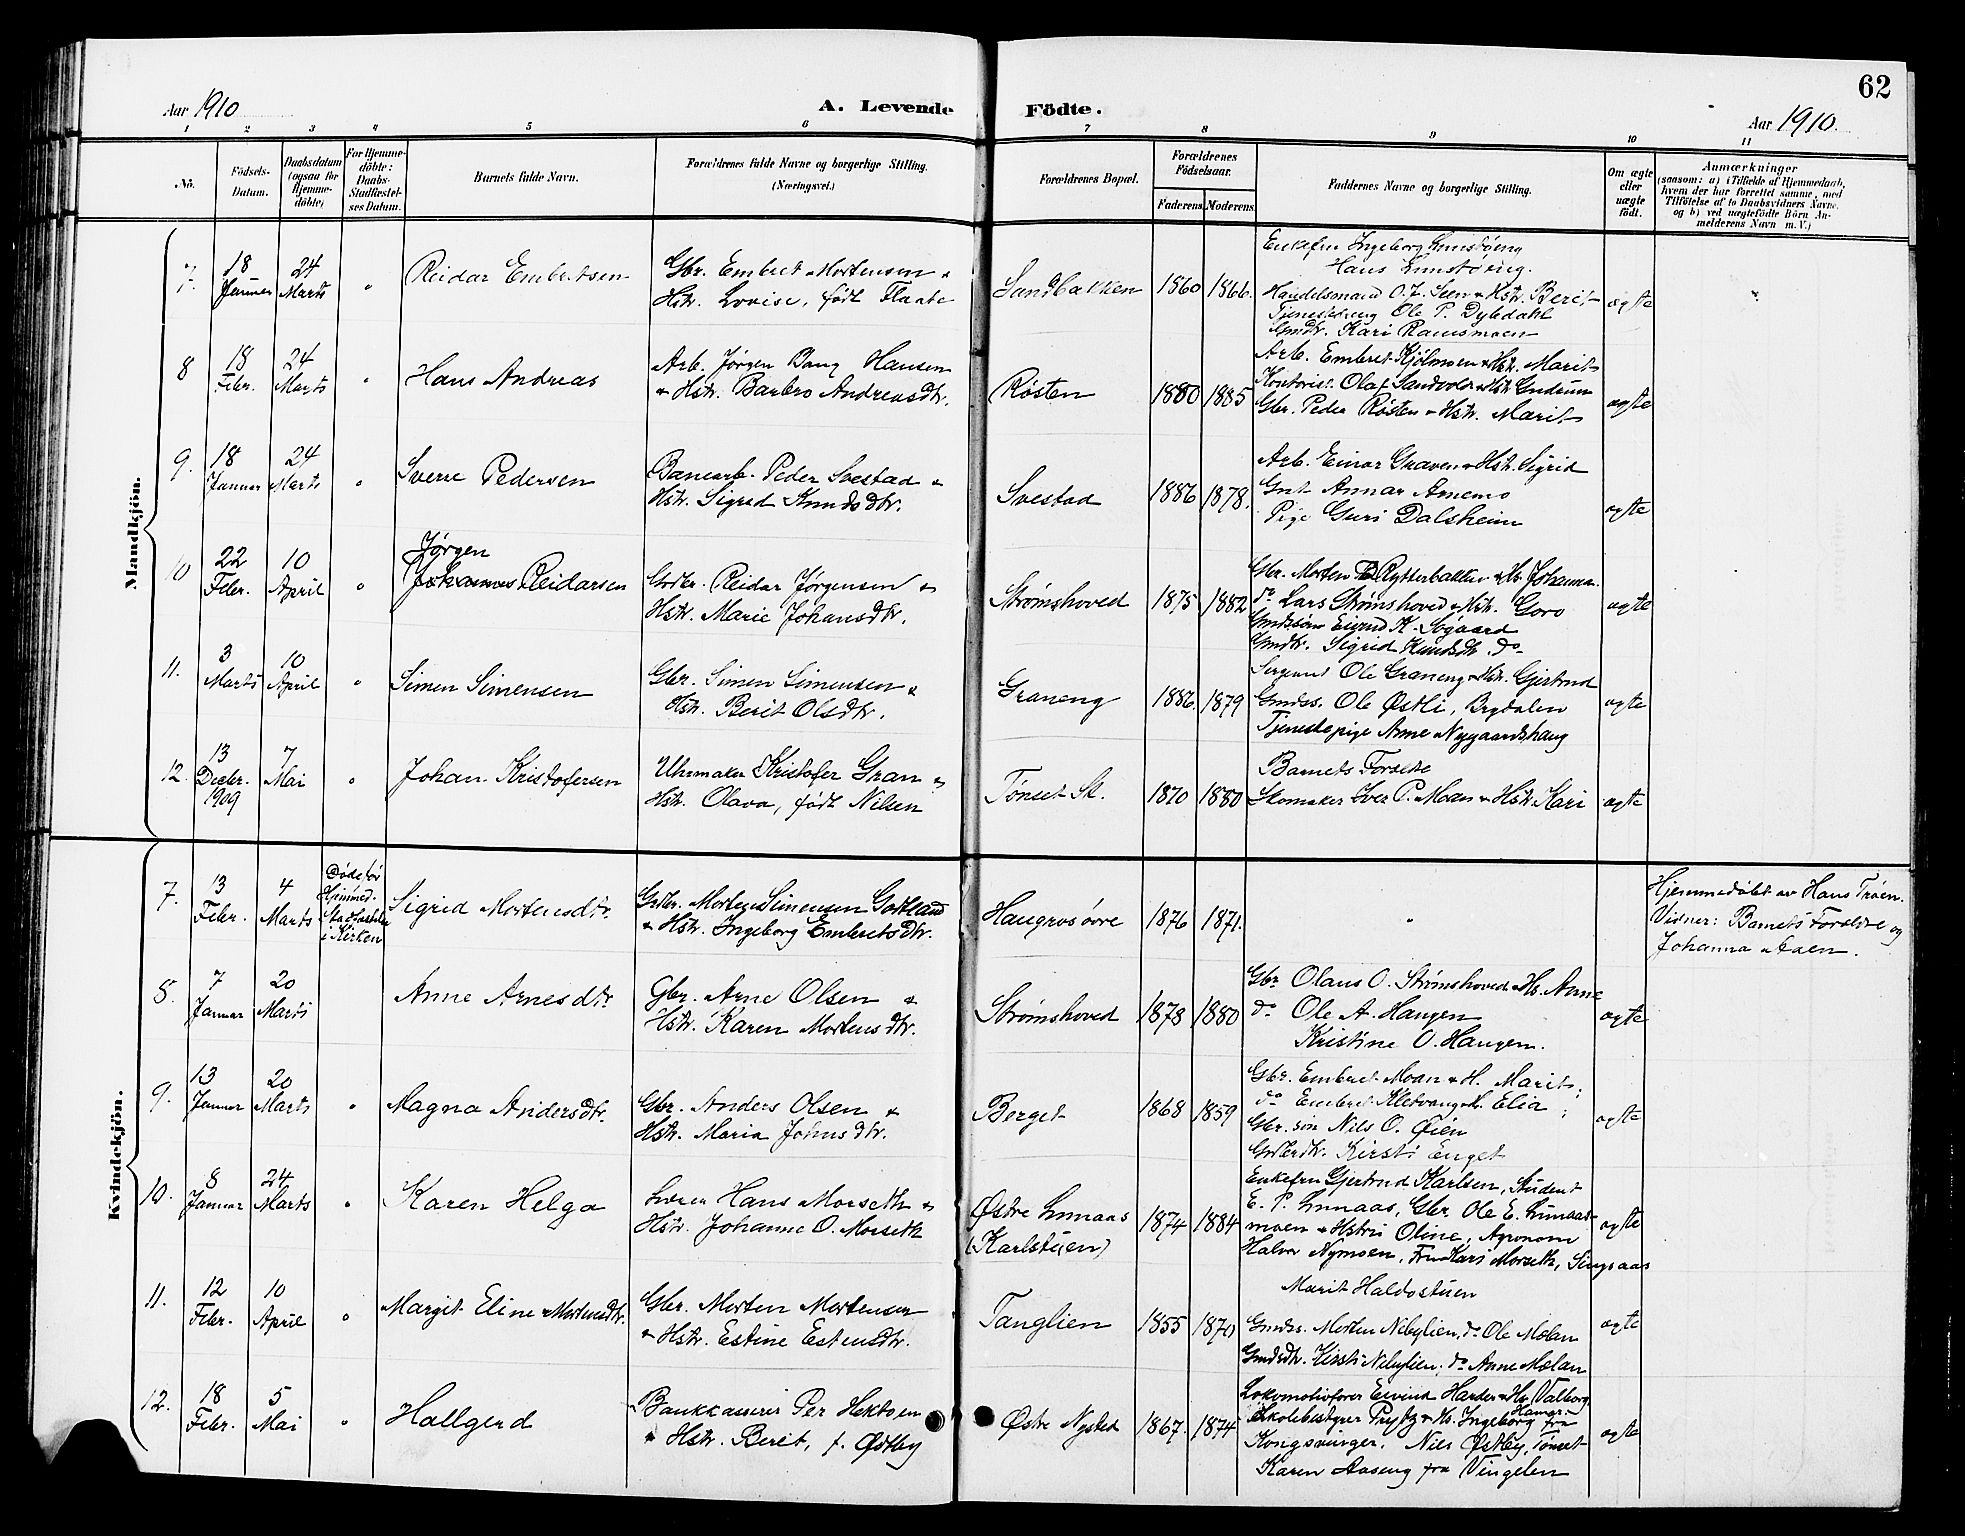 62
Aar 1910
A. Levende Födte.
Aar 1910.
1 2 3 4 5 6 7 8 9 10 11
No.
Födsels-Datum.
Daabsdatum (ogsaa för Hjemme-döbte)
For Hjemme-döbte: Daabs-Stadfæstel-ses Datum.
Barnets fulde Navn.
Forældrenes fulde Navne og borgerlige Stilling.
(Næringsvei.)
Forældrenes Bopæl.
Forældrenes Födselsaar.
Faderens Moderens
Faddernes Navne og borgerlige Stilling.
Om ægte eller uægte födt.
Anmærkninger
(saasom: a) i Tilfælde af Hjemmedaab,
hvem der har forrettet samme, med
Tilföielse af to Daabsvidners Navne,
og b) ved uægtefödte Börn An-
melderens Navn m. V.)
Mandkjön.
7. 18 Januar 24 Marts " Reidar Embretsen
Gbr. Embret Mortensen &
Hstr. Lovise, født Flaate
Sandbakken 1860 1866.
Enkefru Ingeborg
Hans
Handelsmand O. J. Steen & Hstr. Berit
Tjenestedreng Ole P. Dybdahl
Gmdtr. Kari Ramsmoen
ægte
8 18 Febr. 24 Marts " Hans Andreas
Arb. Jørgen Bang Hansen
& Hstr. Barbro Andreasdtr.
Røsten 1880 1885
Arb. Embret Kjølmoen & Hstr. Marit
Kontorist Olaf & Hstr. Gudrun
Gbr. Peder Røsten & Hstr. Marit
ægte
9. 18 Januar 24 Marts " Sverre Pedersen
Banearb. Peder Svestad &
Hstr. Sigrid Knudsdtr.
Svestad 1886 1878.
Arb. Einar Graven & Hstr. Sigrid
Gut Annar Arnemo
Pige Guri Dalsheim
ægte
10 22 Febr. 10 April " Jørgen
Johannes Reidarsen
Grdbr. Reidar Jørgensen &
Hstr. Marie Johansdtr.
Strømshoved 1875 1882
Gbr. Morten Rytterbakken & Hs. Johanna
do Lars Strømshoved & Hstr. Goro
Gmdssøn Eivind K. Søgaard
Gmdtr. Sigrid Knudsdtr. do
ægte
11. 3 Marts 10 April " Simen Simensen
Gbr. Simen Simensen &
Hstr. Berit Olsdtr.
Graneng 1886. 1879
Sergeant Ole Graneng & Hstr. Gjertrud
Gmdss. Ole Østli, Brydalen
Tjenestepige Anne Nygaardshaug
ægte
12. 13 Decbr. 1909 7 Mai " Johan Kristofersen
Uhrmaker Kristofer Gran &
Hstr. Olava, født Nilsen
Tønset St. 1870 1880
Barnets Forældre
Skomaker Iver P. Moan & Hstr. Kari
ægte
Kvindekjön.
7. 13 Febr. 4 Marts Døde før
Hjemmed.
Stadfæstelse
i Kirken
Sigrid Mortensdtr.
Grdbr. Morten Simensen Gotland
& Hstr. Ingeborg Embretsdtr.
Haugrosøvre 1876 1871.
"
Hjemmedøbt av Hans Trøen.
Vidner: Barnets Forældre og
Johanna Aaen.
8. 7 Januar 20 Marts Anne Arnesdtr.
Gbr. Arne Olsen &
Hstr. Karen Mortensdtr.
Strømshoved 1878 1880
Gbr. Olaus O. Strømshoved & Hs. Anne
do Ole A. Haugen
Kristine O. Haugen.
ægte
9. 13 Januar 20 Marts " Magna Andersdtr.
Gbr. Anders Olsen &
Hstr. Maria Johnsdtr.
Berget 1868 1859
Gbr. Embret Moan & H. Marit;
do Embret Kletvang & H. Elia;
Gbr. søn Nils O. Øien
Grdbrdtr. Kirsti Enget
ægte
10. 8 Januar 24 Marts " Karen Helga
Lærer Hans Morseth &
Hstr. Johanne O. Morseth
Østre Lunaas
(Karlstuen)
1874 1884
Enkefru Gjertrud Karlsen, Student
E. P. Lunaas, Gbr. Ole E. Lunaas-
moen & Hstru Oline, Agronom
Halvor Nymoen, Fru Kari Morseth, Singsaas
Marit Haldostuen
ægte
11. 12 Febr. 10 April " Margit Eline Mortensdtr.
Gbr. Morten Mortensen
& Hstr. Estine Estensdtr.
Tanglien 1855 1870
Gmdss. Morten Nebylien, do Ole Mælan
Gmdsdtr. Kirsti Nebylien, do Anne Mælan
ægte
12. 18 Febr. 5 Mai " Hallgerd
Bankkasserer Per Hektoen
& Hstr. Berit, f. Østby
Østre Nysted 1867. 1874
Lokomotivfører Eivind Harder & Hs. Valborg Hamar.
Skolebestyrer Prytz & Hs. Ingeborg fra
Kongsvinger. Nils Østby, Tønset
Karen Aaseng fra Vingelen
ægte